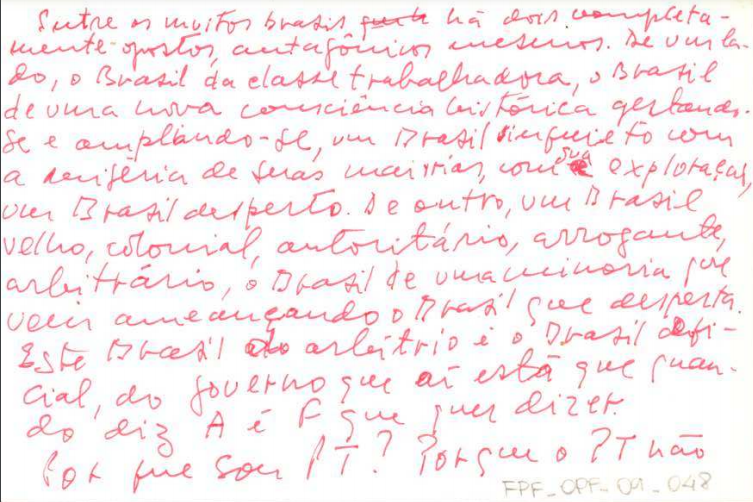 Entre os muitos brasis há dois completa-
mente opostos, antagônicos mesmos. De um la-
do, o Brasil da classe trabalhadora, o Brasil
de uma nova consciência histórica gestando-
se e ampliando-se, um Brasil inquieto com
a miséria de suas maiorias, com sua exploração,
um Brasil desperto. De outro, um Brasil
velho, colonial, autoritário, arrogante,
arbitrário, o Brasil de uma minoria que
vem ameaçando o Brasil que desperta.
Este Brasil do arbítrio é o Brasil ofi-
cial, do governo que aí está que quan-
do diz A é F que quer dizer.
Por que sou PT? Porque o PT não
FPF_OPF_01_048